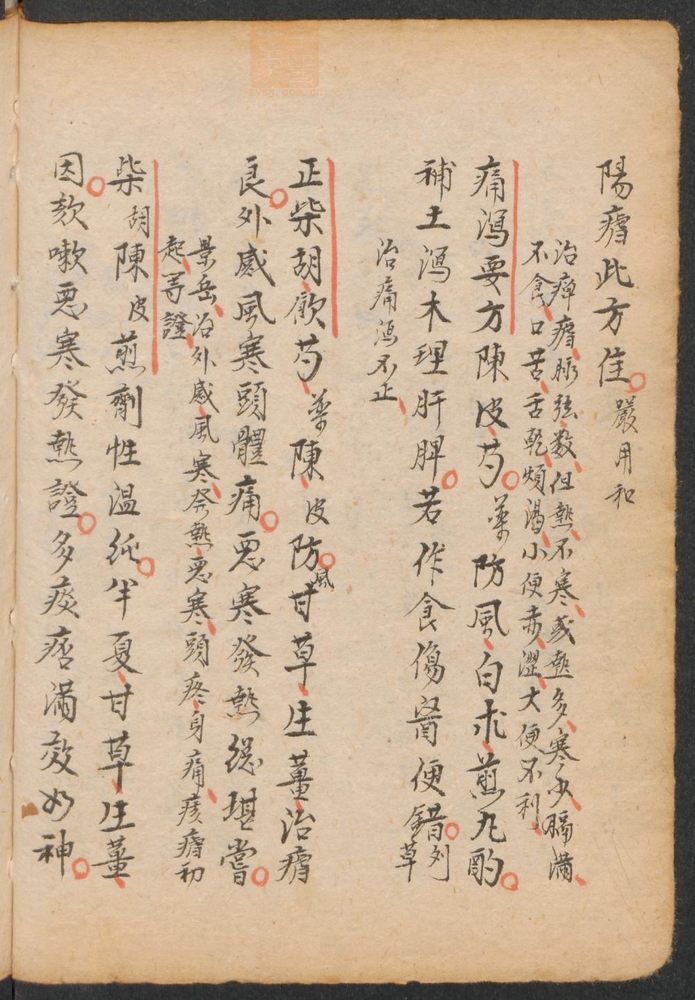 陽瘧此方佳嚴用和
治痺瘧脉弦数但熱不寒或熱多寒少膈滿
不食口苦舌乾煩渴小便赤澀大便不利
痛瀉要方陳皮芍藥防風白朮煎丸酌
補土瀉木理肝脾若作食傷醫便錯列草
治痛瀉不止
正柴胡飲芍藥陳皮防風甘草生薑治瘧
良外感風寒頭體痛惡寒發熱總堪嘗
景岳治外感風寒發熱惡寒頭疼身痛痎瘧初
起等證
柴胡陳皮煎劑性温純半夏甘草生薑
因欬嗽惡寒發熱證多痰痞滿效如神